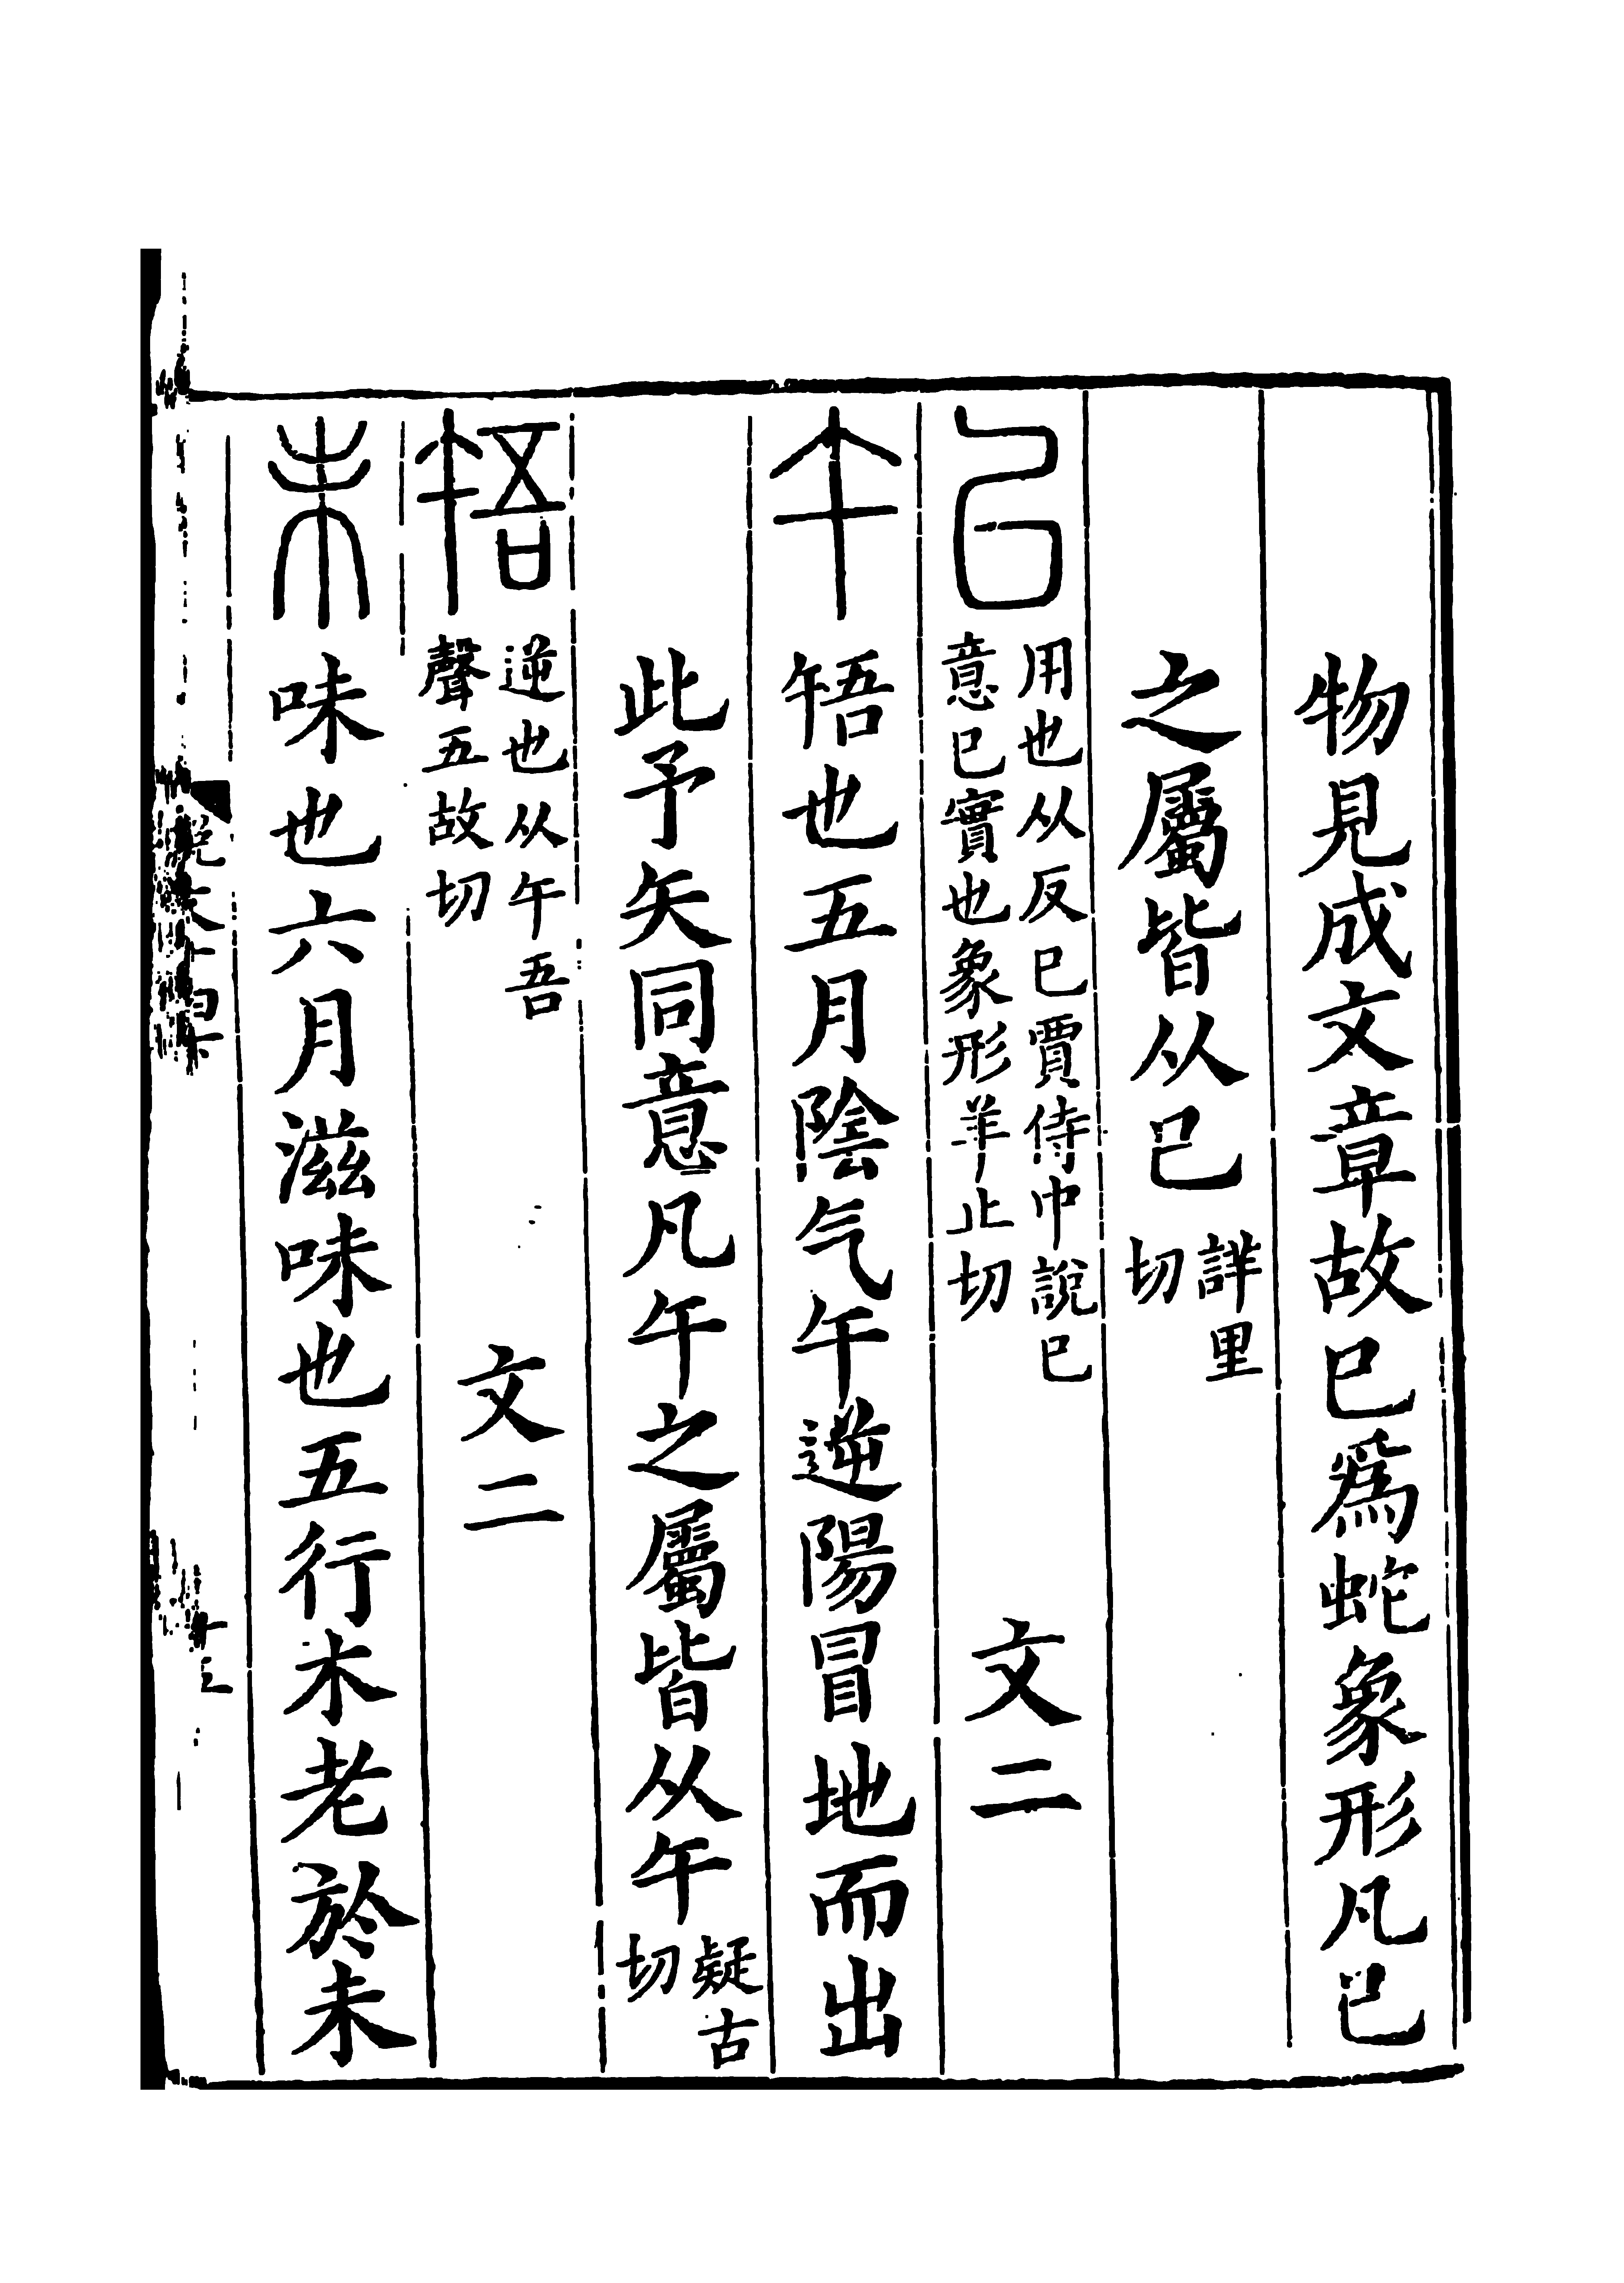 物見成文章故巳爲蛇象形凡巳
之屬皆从巳詳里切
㠯用也从反巳賈侍中說巳意巳實也象形羊止切 文二
午啎也五月陰气午逆陽冒地而出
此予矢同意凡午之屬皆从午疑古切
啎逆也从午吾聲五故切 文二
未味也六月滋味也五行木老於未